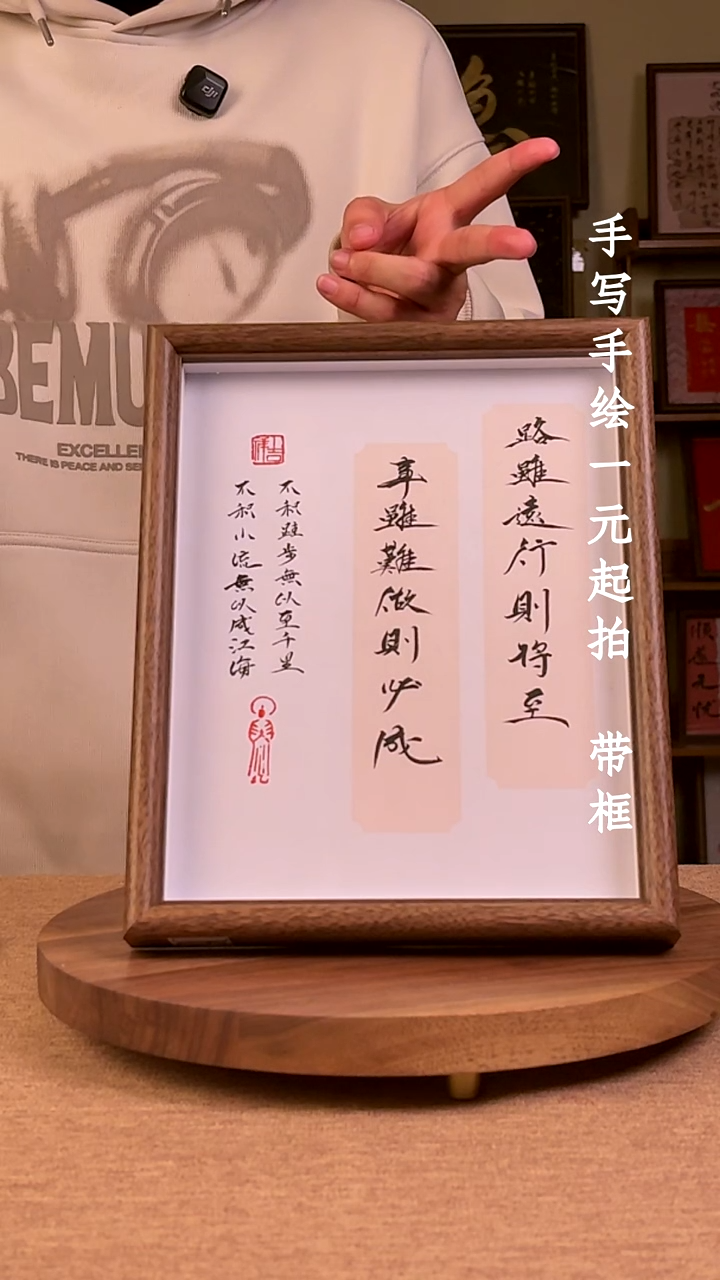 手写手绘一元起拍 带框
路雖遠行則将至
事雖難做則必成
不积跬步無以至千里
不积小流無以成江海
dji
BEMU
EXCELLE
THERE IS PEACE AND SE